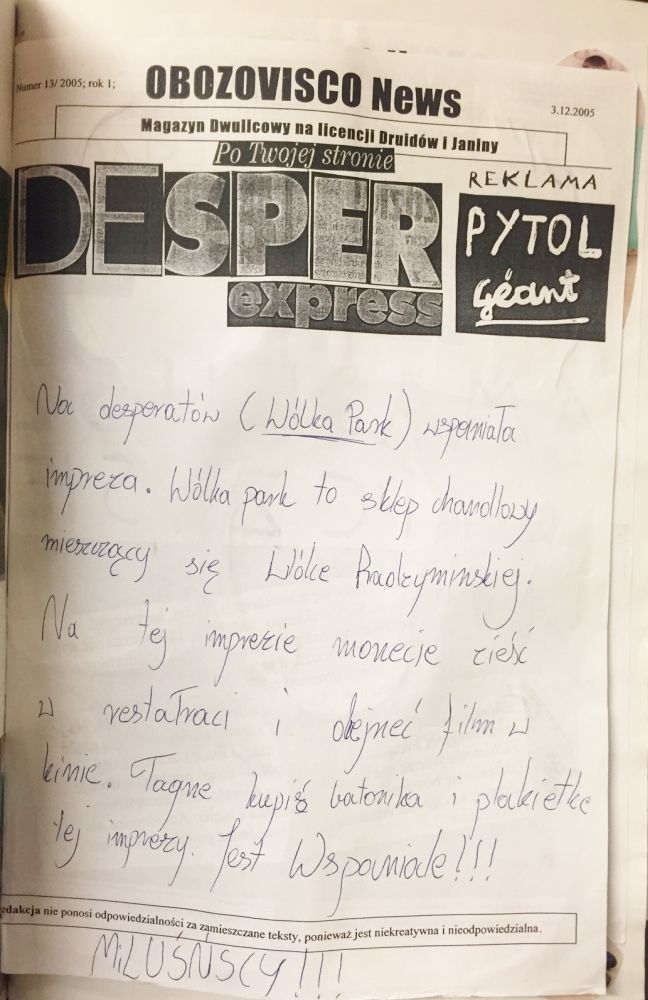 Numer 13/ 2005; rok 1;
OBOZOVISCO News
3.12.2005
Magazyn Dwulicowy na licencji Druidów i Janiny
Po Twojej stronie
DESPER
express
REKLAMA
PYTOL
Géant
Noc desperatów (Wólka Park) wspaniała
impreza. Wólka park to sklep chandlowy
mieszczący się Wólce Radzyminskiej.
Na tej imprezie monecie zieść
w restałraci i obejneć film w
kinie. Tagne kupić batonika i plakietke
tej imprezy. Jest Wspaniale!!!
edakcja nie ponosi odpowiedzialności za zamieszczane teksty, ponieważ jest niekreatywna i nieodpowiedzialna.
MiLUŚŃSCY!!!